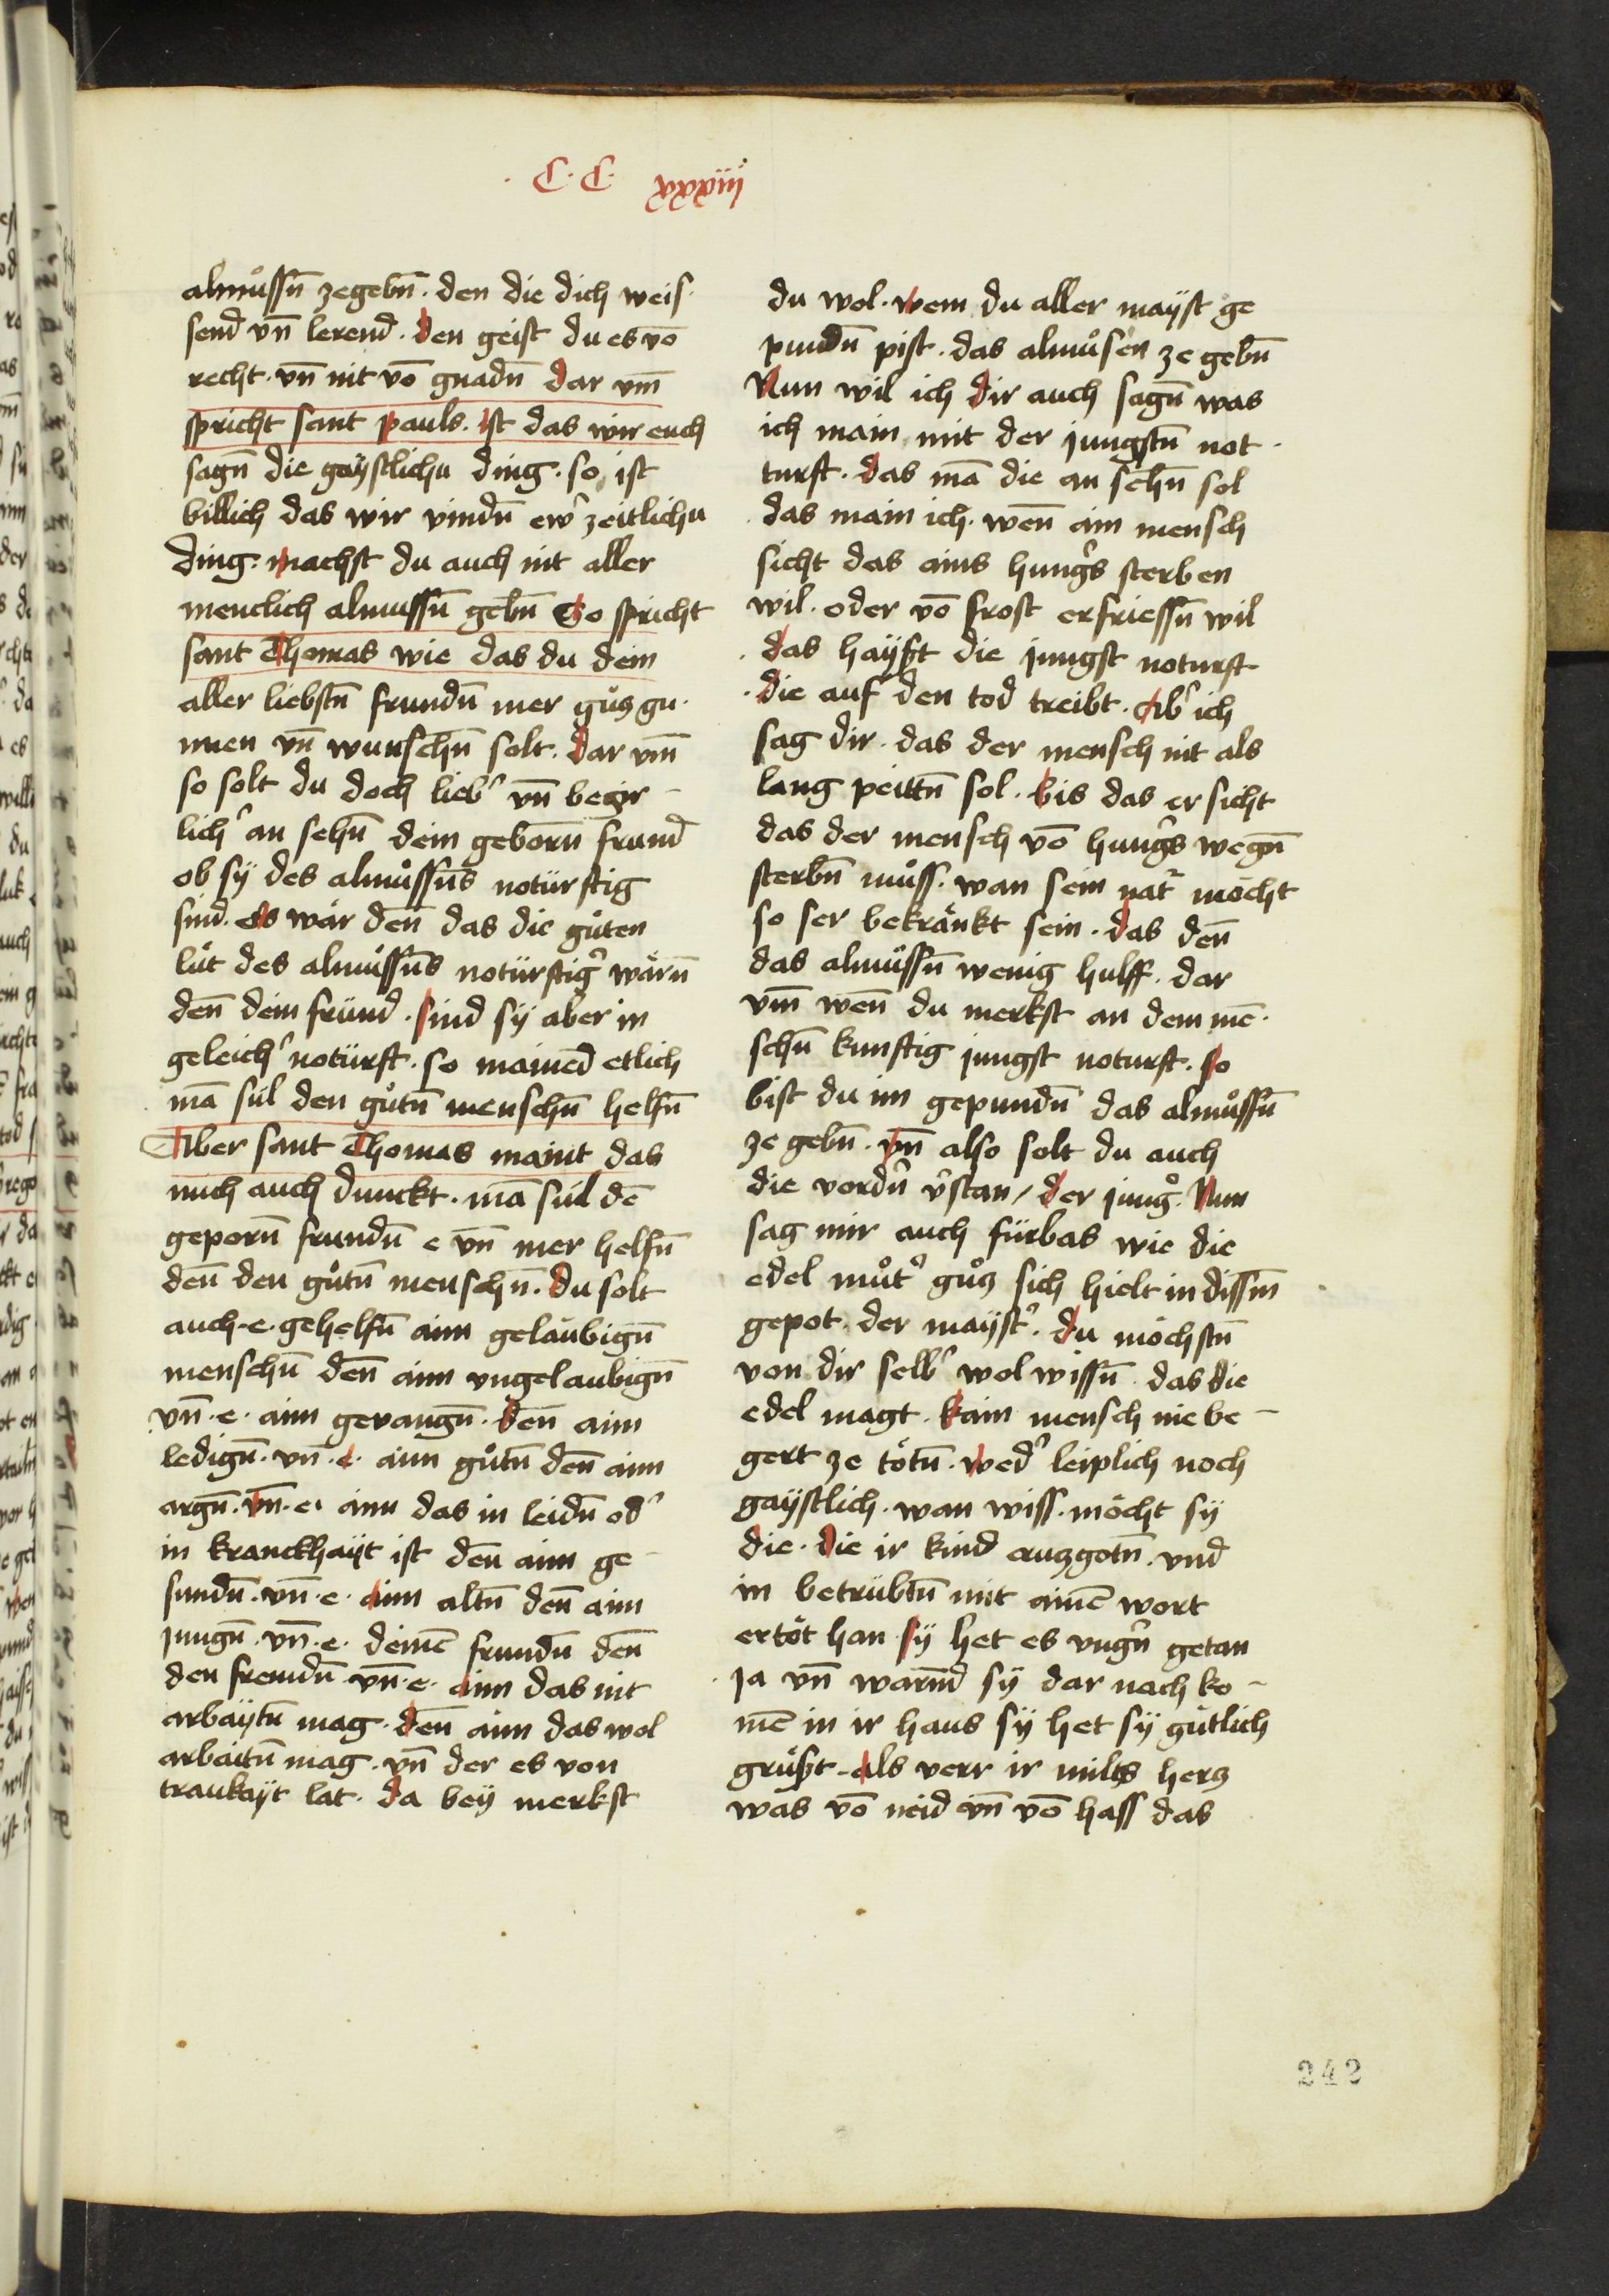 · C · C · xxxiiij
almuͦssn̄ zegebn̄ · den die dich weis·
send vn̄ lerend · den geist du es vō
recht · vn̄ nit vō gnadn̄ dar vm̄
spricht sant pauls · ist das wir euch
sagn̄ die gaÿstlichn ding · so ist
billich das wir vindn̄ ewr̉ zeitlichn
ding · machst du auch nit aller
menclich almussn̄ gebn̄ So spricht
sant Thomas wie das du dein
aller liebstn̄ frundn̄ mer guͦz gu·
nnen vn̄ wunschn̄ solt · dar vm̄
so solt du doch lieb̉ vn̄ begir-
lich̉ an sehn̄ dein geborn̄ frund
ob sÿ des almuͦssn̄s notürftig
sind · es wär den̄ das die guͦten
lüt des almuͦssn̄s notürftig̉ wärn̄
den̄ dein fründ · sind sÿ aber in
geleich̉ notürft · so mained etlich
mā sül den guͦtn̄ menschn̄ helfn̄
Aber sant Thomas maint das
mich auch dunckt · mā sül dē
geporn̄ frundn̄ e vn̄ mer helfn̄
den̄ den guͦtn̄ menschn̄ · du solt
auch · e · gehelfn̄ ainn geläubign̄
menschn̄ den̄ ainn vngelaubign̄
vn̄ · e · ainn gevangn̄ · den̄ ainn
ledign̄ · vn̄ · e · ainn guͦtn̄ den̄ ainn
argn̄ · vn̄ · e · ainn das in leidn̄ od̉
in kranckhaÿt ist den̄ ainn ge-
sundn̄ · vn̄ · e · ainn altn̄ den̄ ainn
jungn̄ · vn̄ · e · deinē frundn̄ den̄
den fremdn̄ · vn̄ · e · ainn das nit
arbaÿtn̄ mag · den̄ ainn das wol
arbaitn̄ mag · vn̄ der es von
traukaÿt lat · da beÿ merkst
du wol · wem du aller maÿst ge
pundn̄ pist · das almuͦsen ze gebn̄
Nun wil ich dir auch sagn̄ was
ich main mit der jungstn̄ not·
turft · das mā die an sehn̄ sol
das main ich · wen̄ ain mensch
sicht das ains hung̉s sterben
wil · oder vō frost erfriessn̄ wil
· das haÿßt die jungst noturft
· die auf den tod treibt · Ab̉ ich
sag dir · das der mensch nit als
lang peittn̄ sol · bis das er sicht
das der mensch vō hung̉s wegn̄
sterbn̄ muͦss · wan sein nat̉ möcht
so ser bekränkt sein · das den̄
das almuͦssn̄ wenig hulff · dar
vm̄ wen̄ du merkst an dem mē·
schn̄ kunftig jungst noturft · so
bist du im gepundn̄ das almuͦssn̄
ze gebn̄ · vn̄ also solt du auch
die vordn̄ v̉stan / der jung̉ · Nun
sag mir auch fürbas wie die
edel muͦt̉ guͦz sich hielt in dissm̄
gepot · der maÿst̉ · du möchstn̄
von dir selb̉ wol wissn̄ · das die
edel magt · kain mensch nie be-
gert ze tötn̄ · wed̉ leiplich noch
gaÿstlich · wan wiss · möcht sÿ
die · die ir kind cruzgotn̄ · vnd
in betrübtn̄ mit ainē wort
ertöt han · sÿ het es vngn̄ getan
ja vn̄ warn̄d sÿ dar nach ko-
mē in ir haus sÿ het sÿ gütlich
gruͦßt · als verr ir milts herz
was vō neid vn̄ vō hass das
242